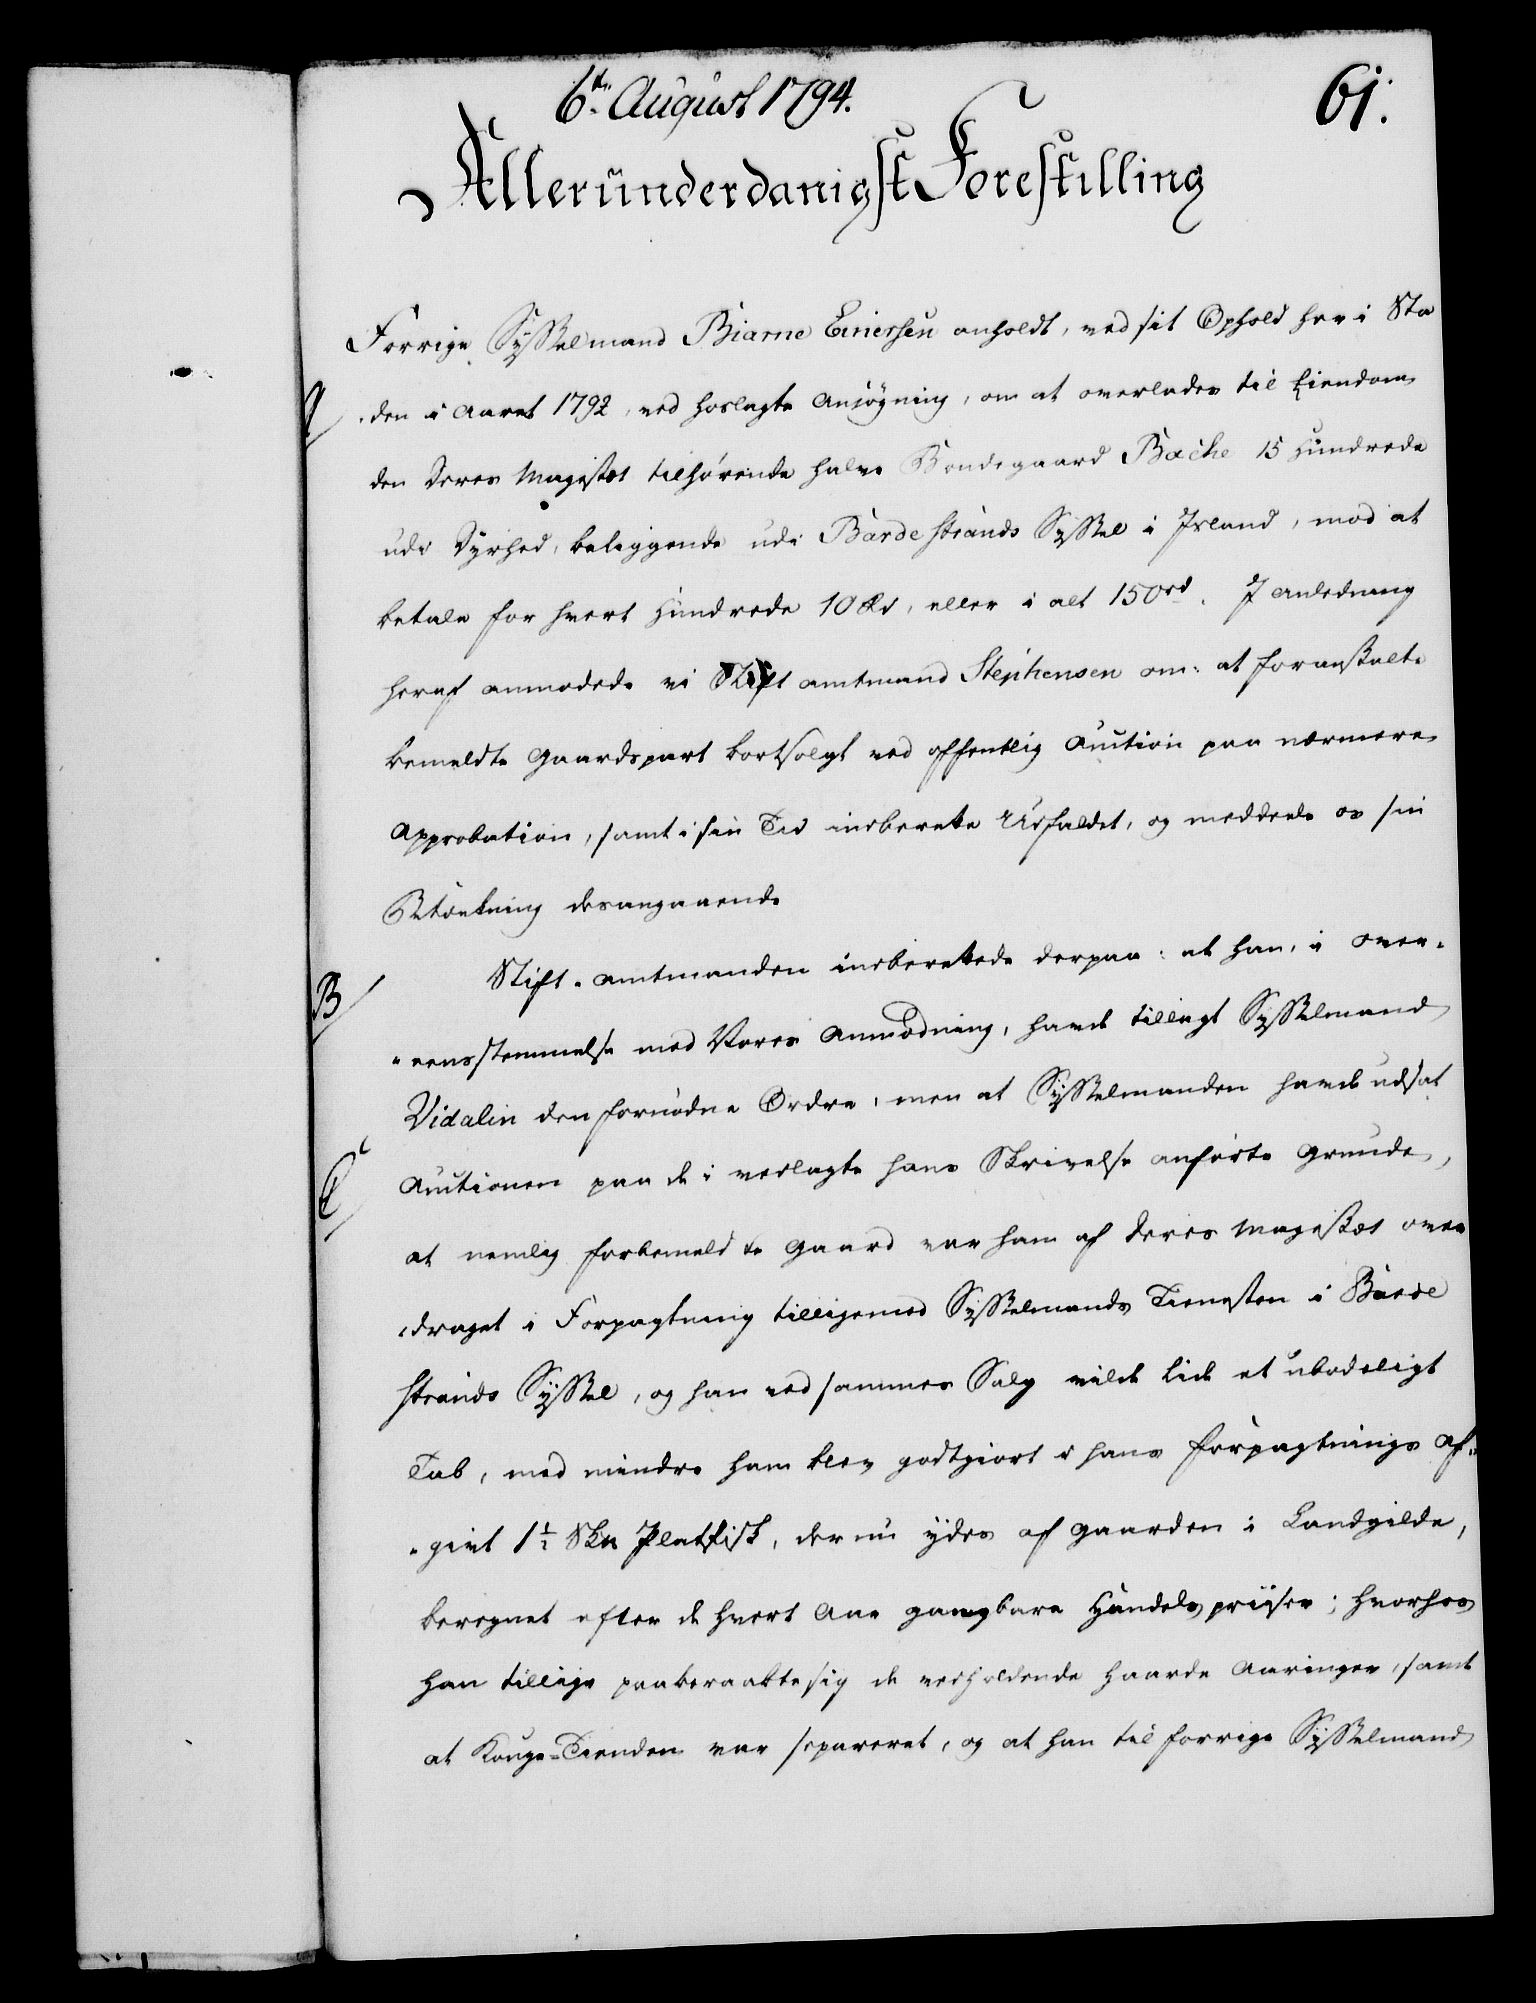 6te August 1794.
61.
Allerunderdanigst Forestilling
Forrige Sysselmand Biarne Einersen anholdt, ved sit Ophold her i Sta
A
den i Aaret 1792, ved hoslagte Ansøgning, om at overlades til Eiendom
den Deres Majestæt tilhørende halve Bondegaard Backe 15 Hundrede
udi Dyrhed, beliggende udi Bardestrands Syssel i Island, mod at
betale for hvert Hundrede 10 Rd, eller i alt 150rd. I Anledning
heraf anmodede vi Stiftamtmand Stephensen om: at foranstalte
bemeldte Gaardspart bortsolgt ved offentlig Auction paa nærmere
Approbation, samt i sin Tid indberette Udfaldet, og meddeele os sin
Betænkning desangaaende
Stift-amtmanden indberettede derpaa: at han, i over-
B
-eensstemmelse med Vores Anmodning, havde tillagt Sysselmand
Vidalin den fornødne Ordre, men at Sysselmanden havde udsat
C
Auctionen paa de i vedlagte hans Skrivelse anførte Grunde,
at nemlig forbemeldte Gaard var ham af Deres Majestæt over
draget i Forpagtning tilligemed Sysselmands Tienesten i Barde
strands Syssel, og han ved sammes Salg vilde lide et ubodeligt
Tab, med mindre ham blev godtgiort i hans Forpagtnings Af-
-givt 1½ Sk℔ Platfisk, der nu ydes af Gaarden i Landgilde,
beregnet efter de hvert Aar gangbare Handelspriiser; hvorhos
han tillige paaberaabte sig de vedholdende haarde Aaringer, samt
at Konge-Tienden var separeret, og at han til forrige Sysselmand